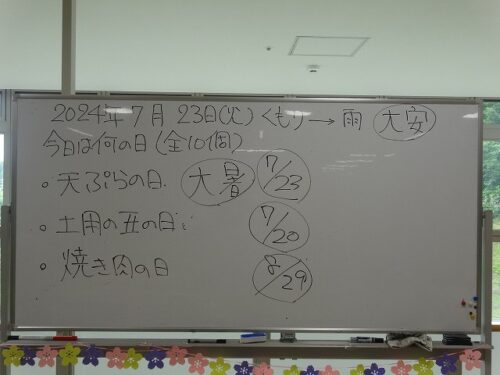 2024年7月23日(火) くもり→雨 大安
今日は何の日(全10個)
・天ぷらの日 大暑 7/23
・土用の丑の日: 7/20
・焼き肉の日 8/29